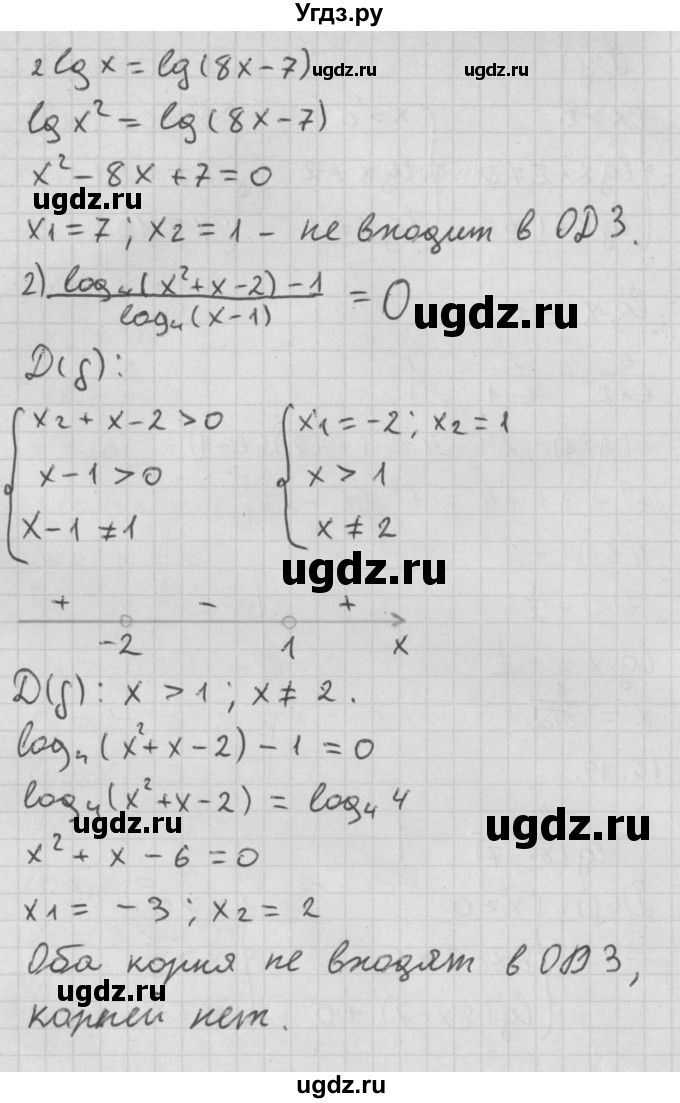 Угдз.ру
2 lg x = lg(8x-7)
ugdz.ru ugdz.ru
lg x² = lg(8x-7)
x² - 8x + 7 = 0
ugdz.ru
x1 = 7; x2 = 1 - не входит в ОДЗ.
2) log₄(x²+x-2)-1 / log₄(x-1) = 0
ugdz.ru
D(f):
{ x2 + x - 2 > 0 { x1 = -2; x2 = 1
x - 1 > 0 x > 1
x - 1 ≠ 1 x ≠ 2
ugdz.ru
+ - +
-2 1 x
D(f): x > 1; x ≠ 2.
log₄(x²+x-2) - 1 = 0
log₄(x²+x-2) = log₄ 4
ugdz.ru ugdz.ru
x² + x - 6 = 0
x1 = -3; x2 = 2
Оба корня не входят в ОДЗ,
ugdz.ru
корней нет.
ugdz.ru